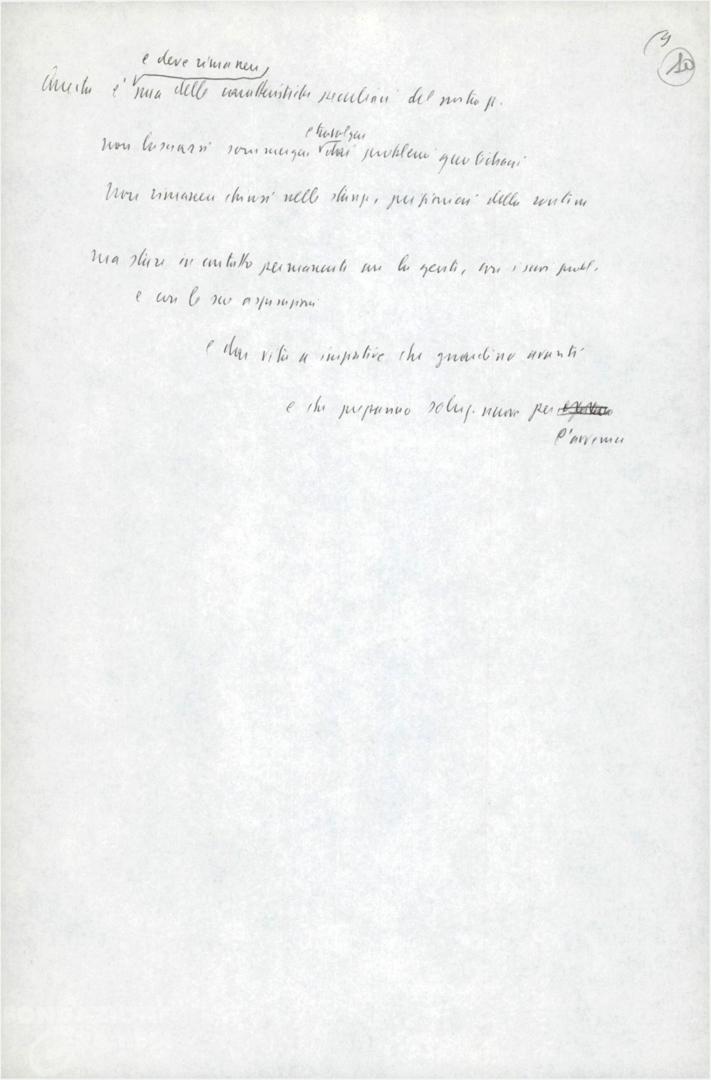 9
10
e deve rimanere,
Questa è una delle caratteristiche peculiari del nostro p.
e travolgere
non lasciarsi sommergere dai problemi quotidiani
Non rimanere chiusi nelle stanze, prigionieri della routine
ma stare in contatto permanente con la gente, con i suoi probl.
e con le sue aspirazioni
e dar vita a iniziative che guardino avanti
e che preparino soluz. nuove per
l'avvenire